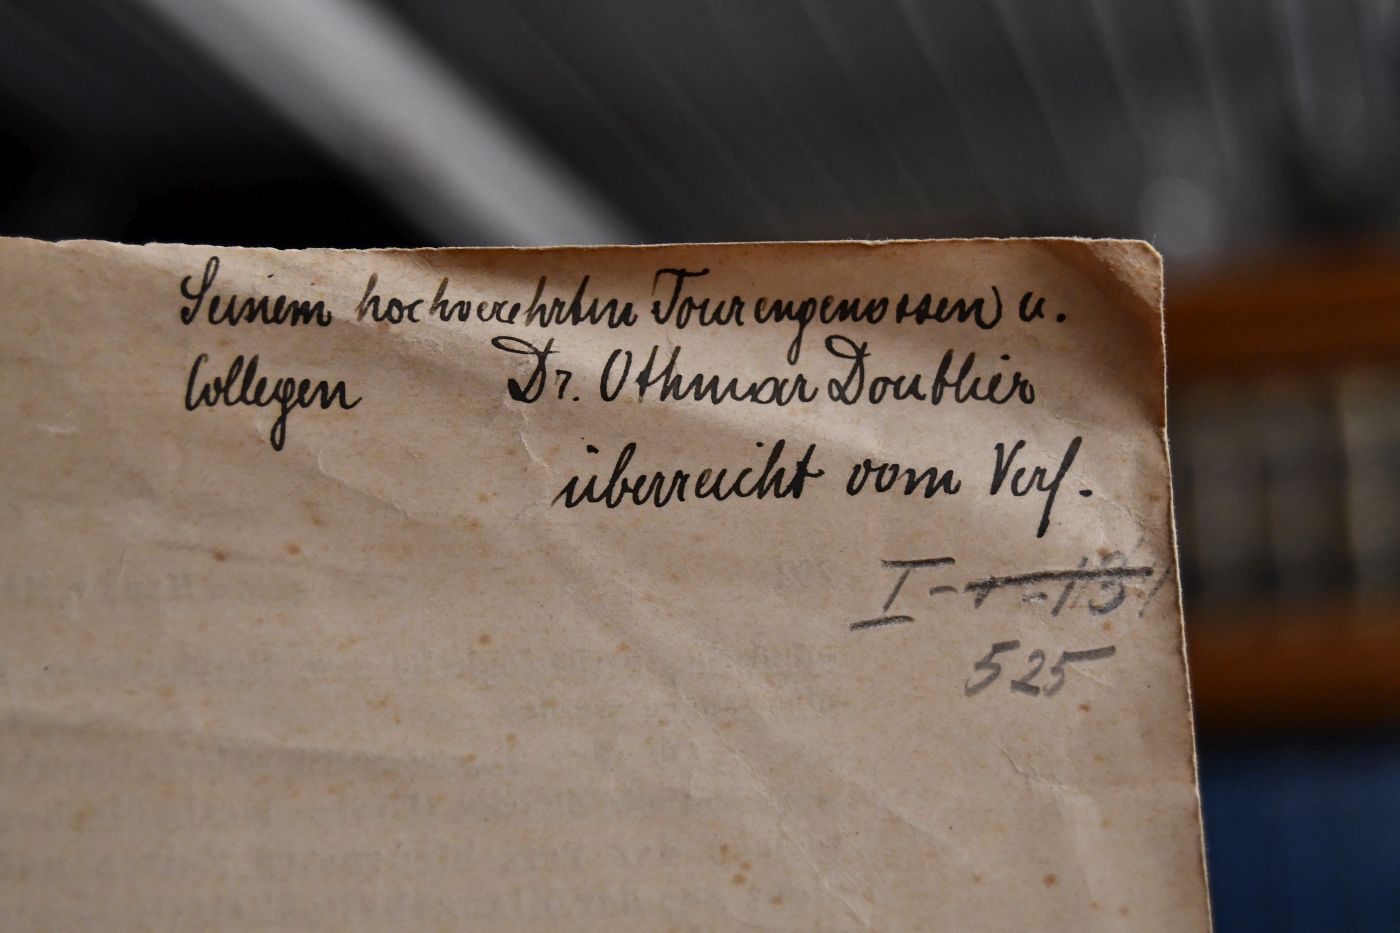 Seinem hochverehrten Tourengenossen u.
Collegen Dr. Othmar Doublier
überreicht vom Verf.
I-
525